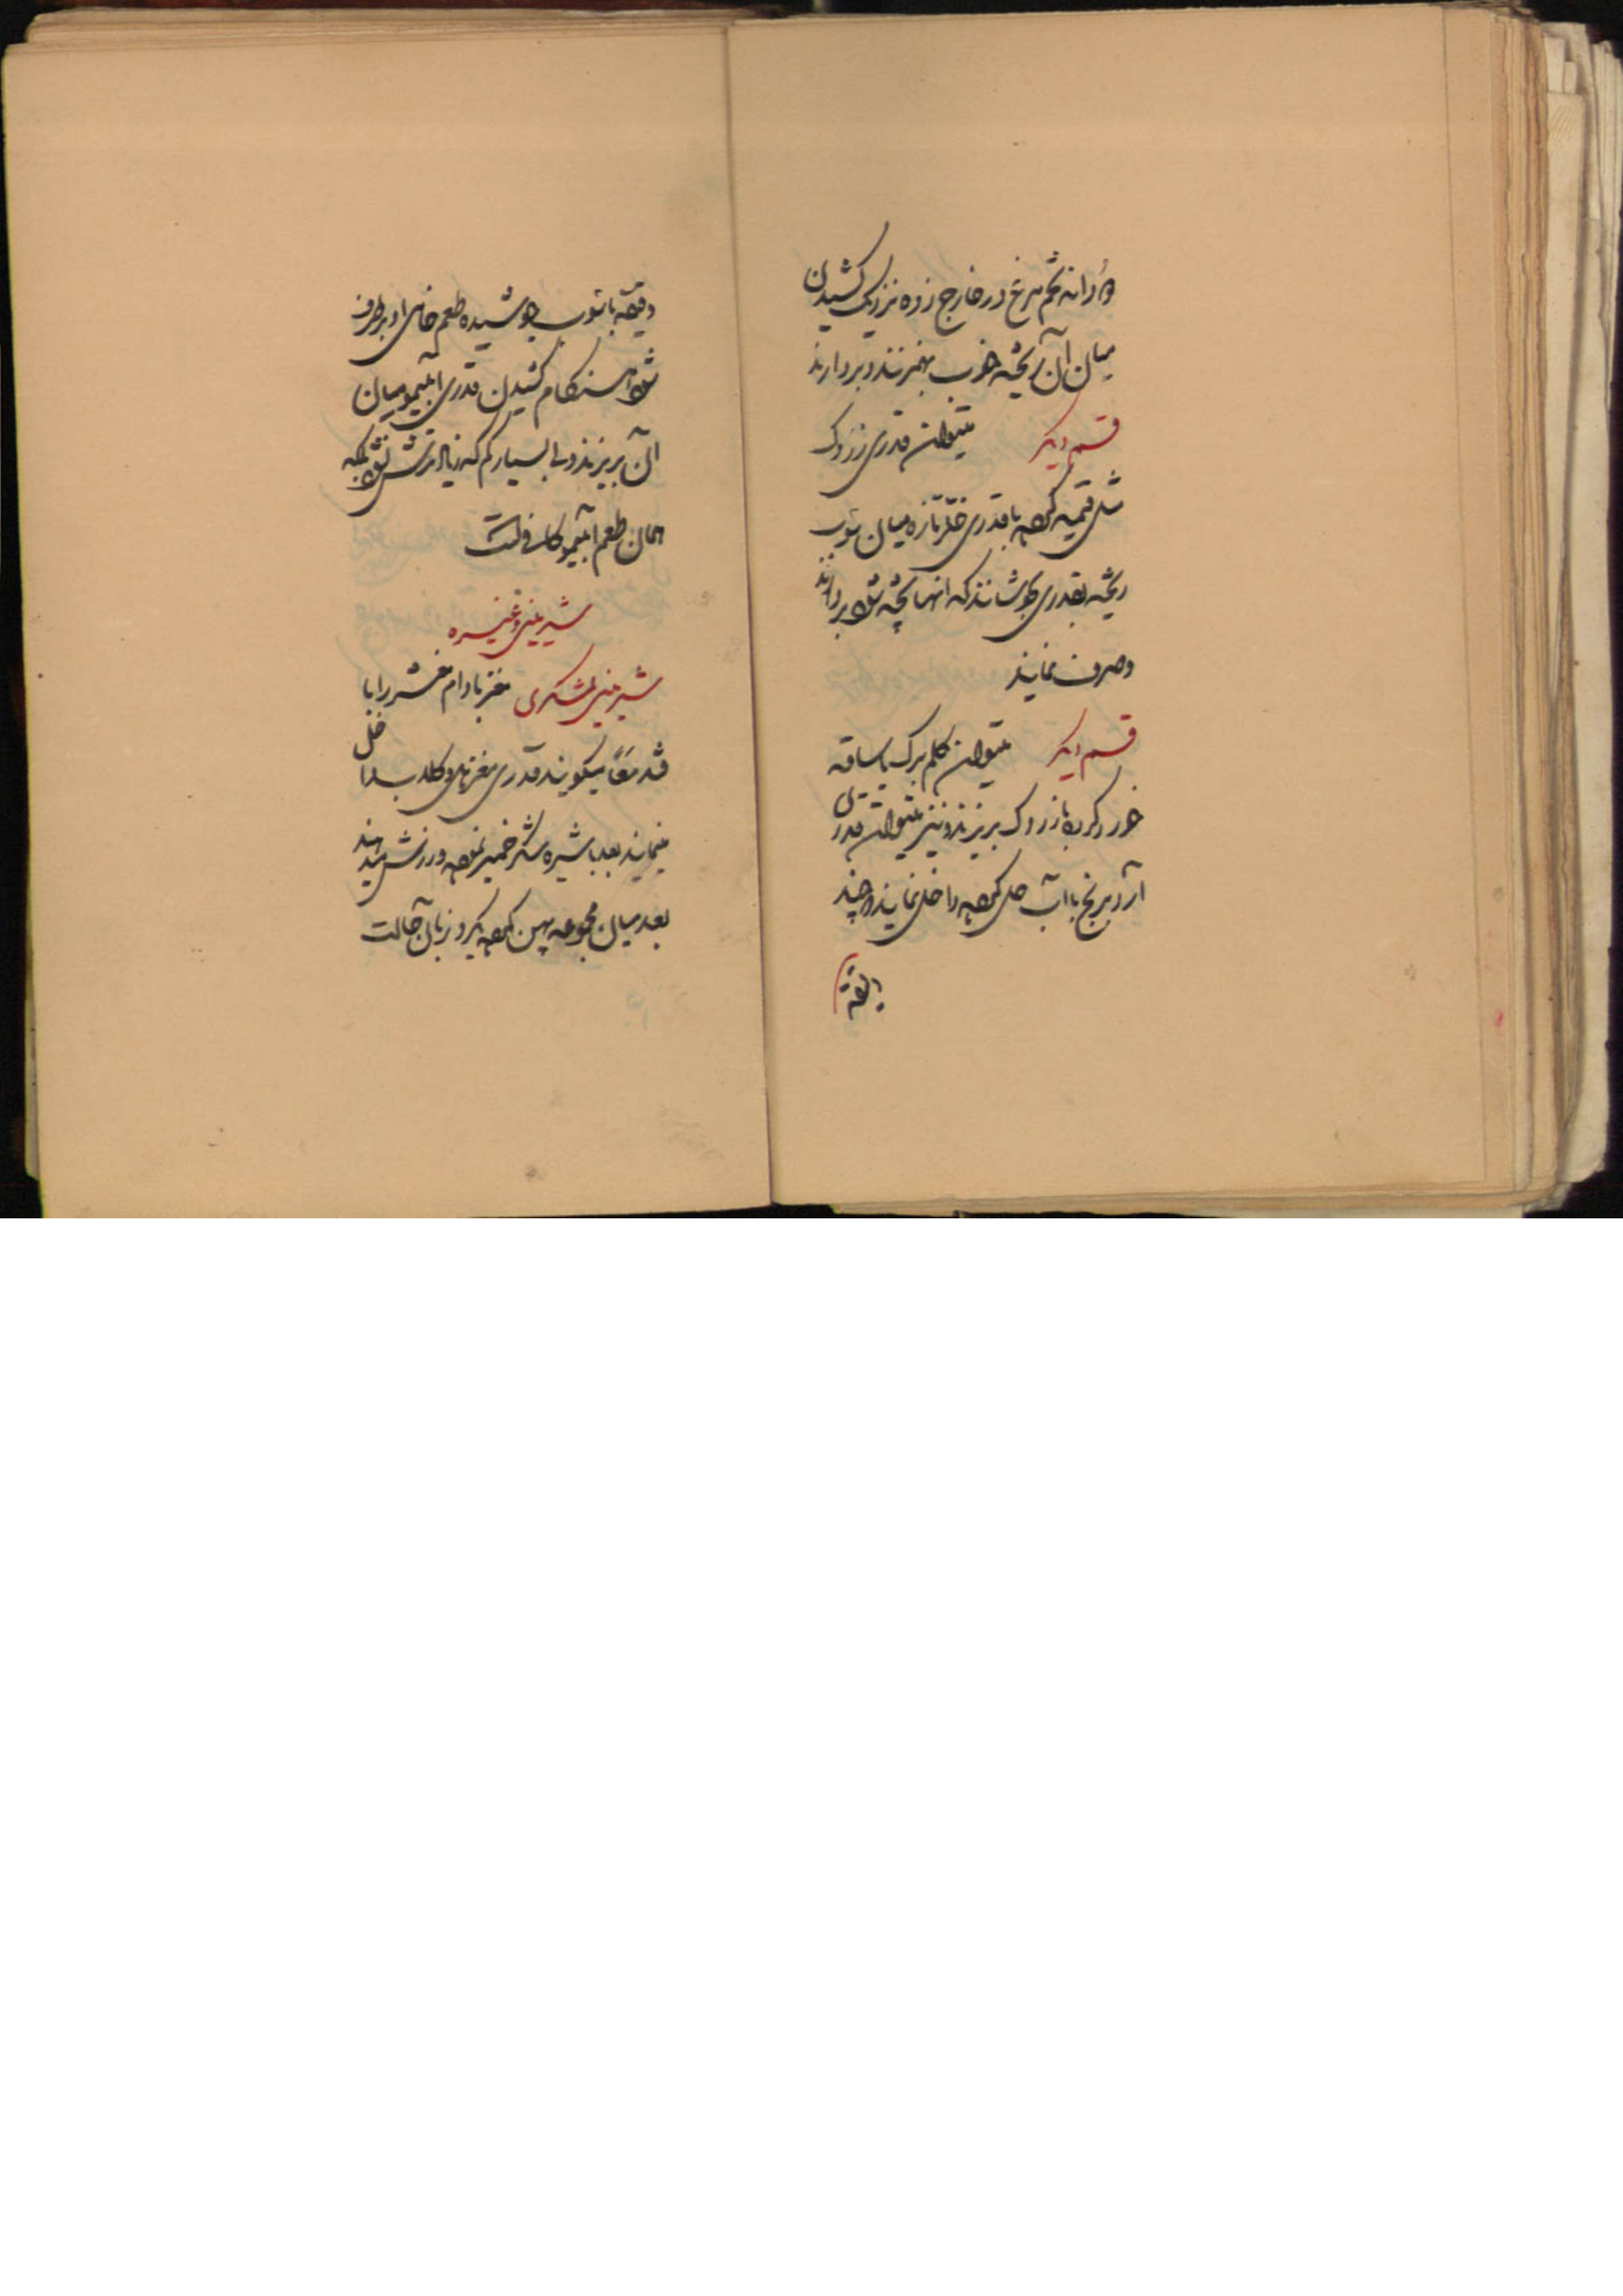 دانه تخم مرغ در خارج زده نزدیک کشیدن
میان آن ریخته خوب بهم زنند و بردارند
قسم دیگر میتوان قدری زردک
مثل قیمه کرده با قدری خلر تازه میان سوپ
ریخته بقدری بجوشانند که آنها پخته شود بردارند
و صرف نمایند
قسم دیگر میتوان کلم برک با ساقه
خورد کرده با زردک بریزند و نیز میتوان قدری
آرد برنج با آب حل کرده داخل نمایند چند
دقیقه
دقیقه با سوپ جوشیده طعم خامی او برطرف
شود هنگام کشیدن قدری آبلیمو میان
آن بریزند ولی بسیار کم که زیاد ترش نشود بلکه
همان طعم آبلیمو کافی است
شیرینی وغیره
شیرینی لشکری مغز بادام مقشر را با
قند میکوبند قدری مغز هل و کلاب داخل
مینمایند بعد با شیره شکر خمیر نموده ورزش میدهند
بعد میان مجموعه پهن کرده یکروز بآن حالت